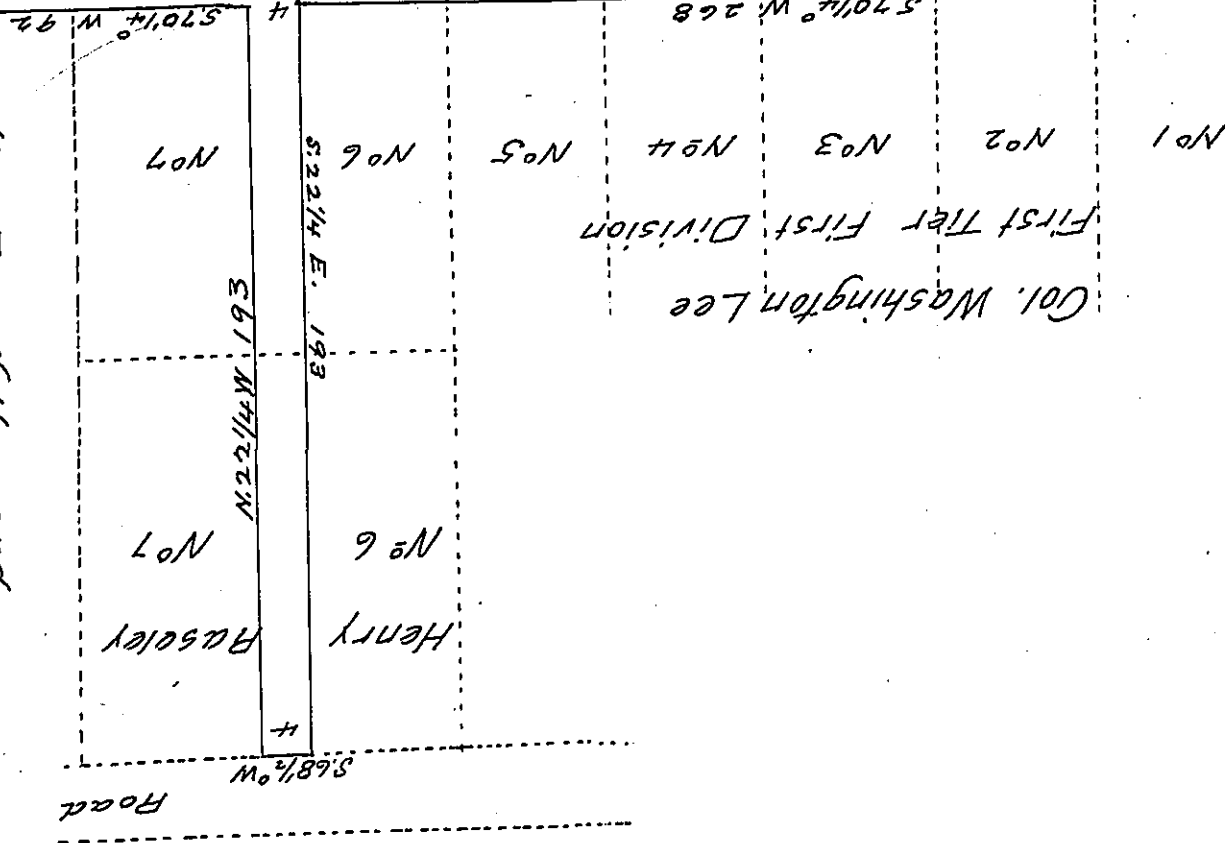 Road
S.68½°W
4
Henry Raseley
Nº 6 Nº7
N.22¼W 193
S.22¼ E. 193
Col. Washington Lee
First Tier First Division
Nº1 Nº2 Nº3 Nº4 Nº5 Nº6 Nº7
S.70¼° W. 268 4 S.70¼° W 92